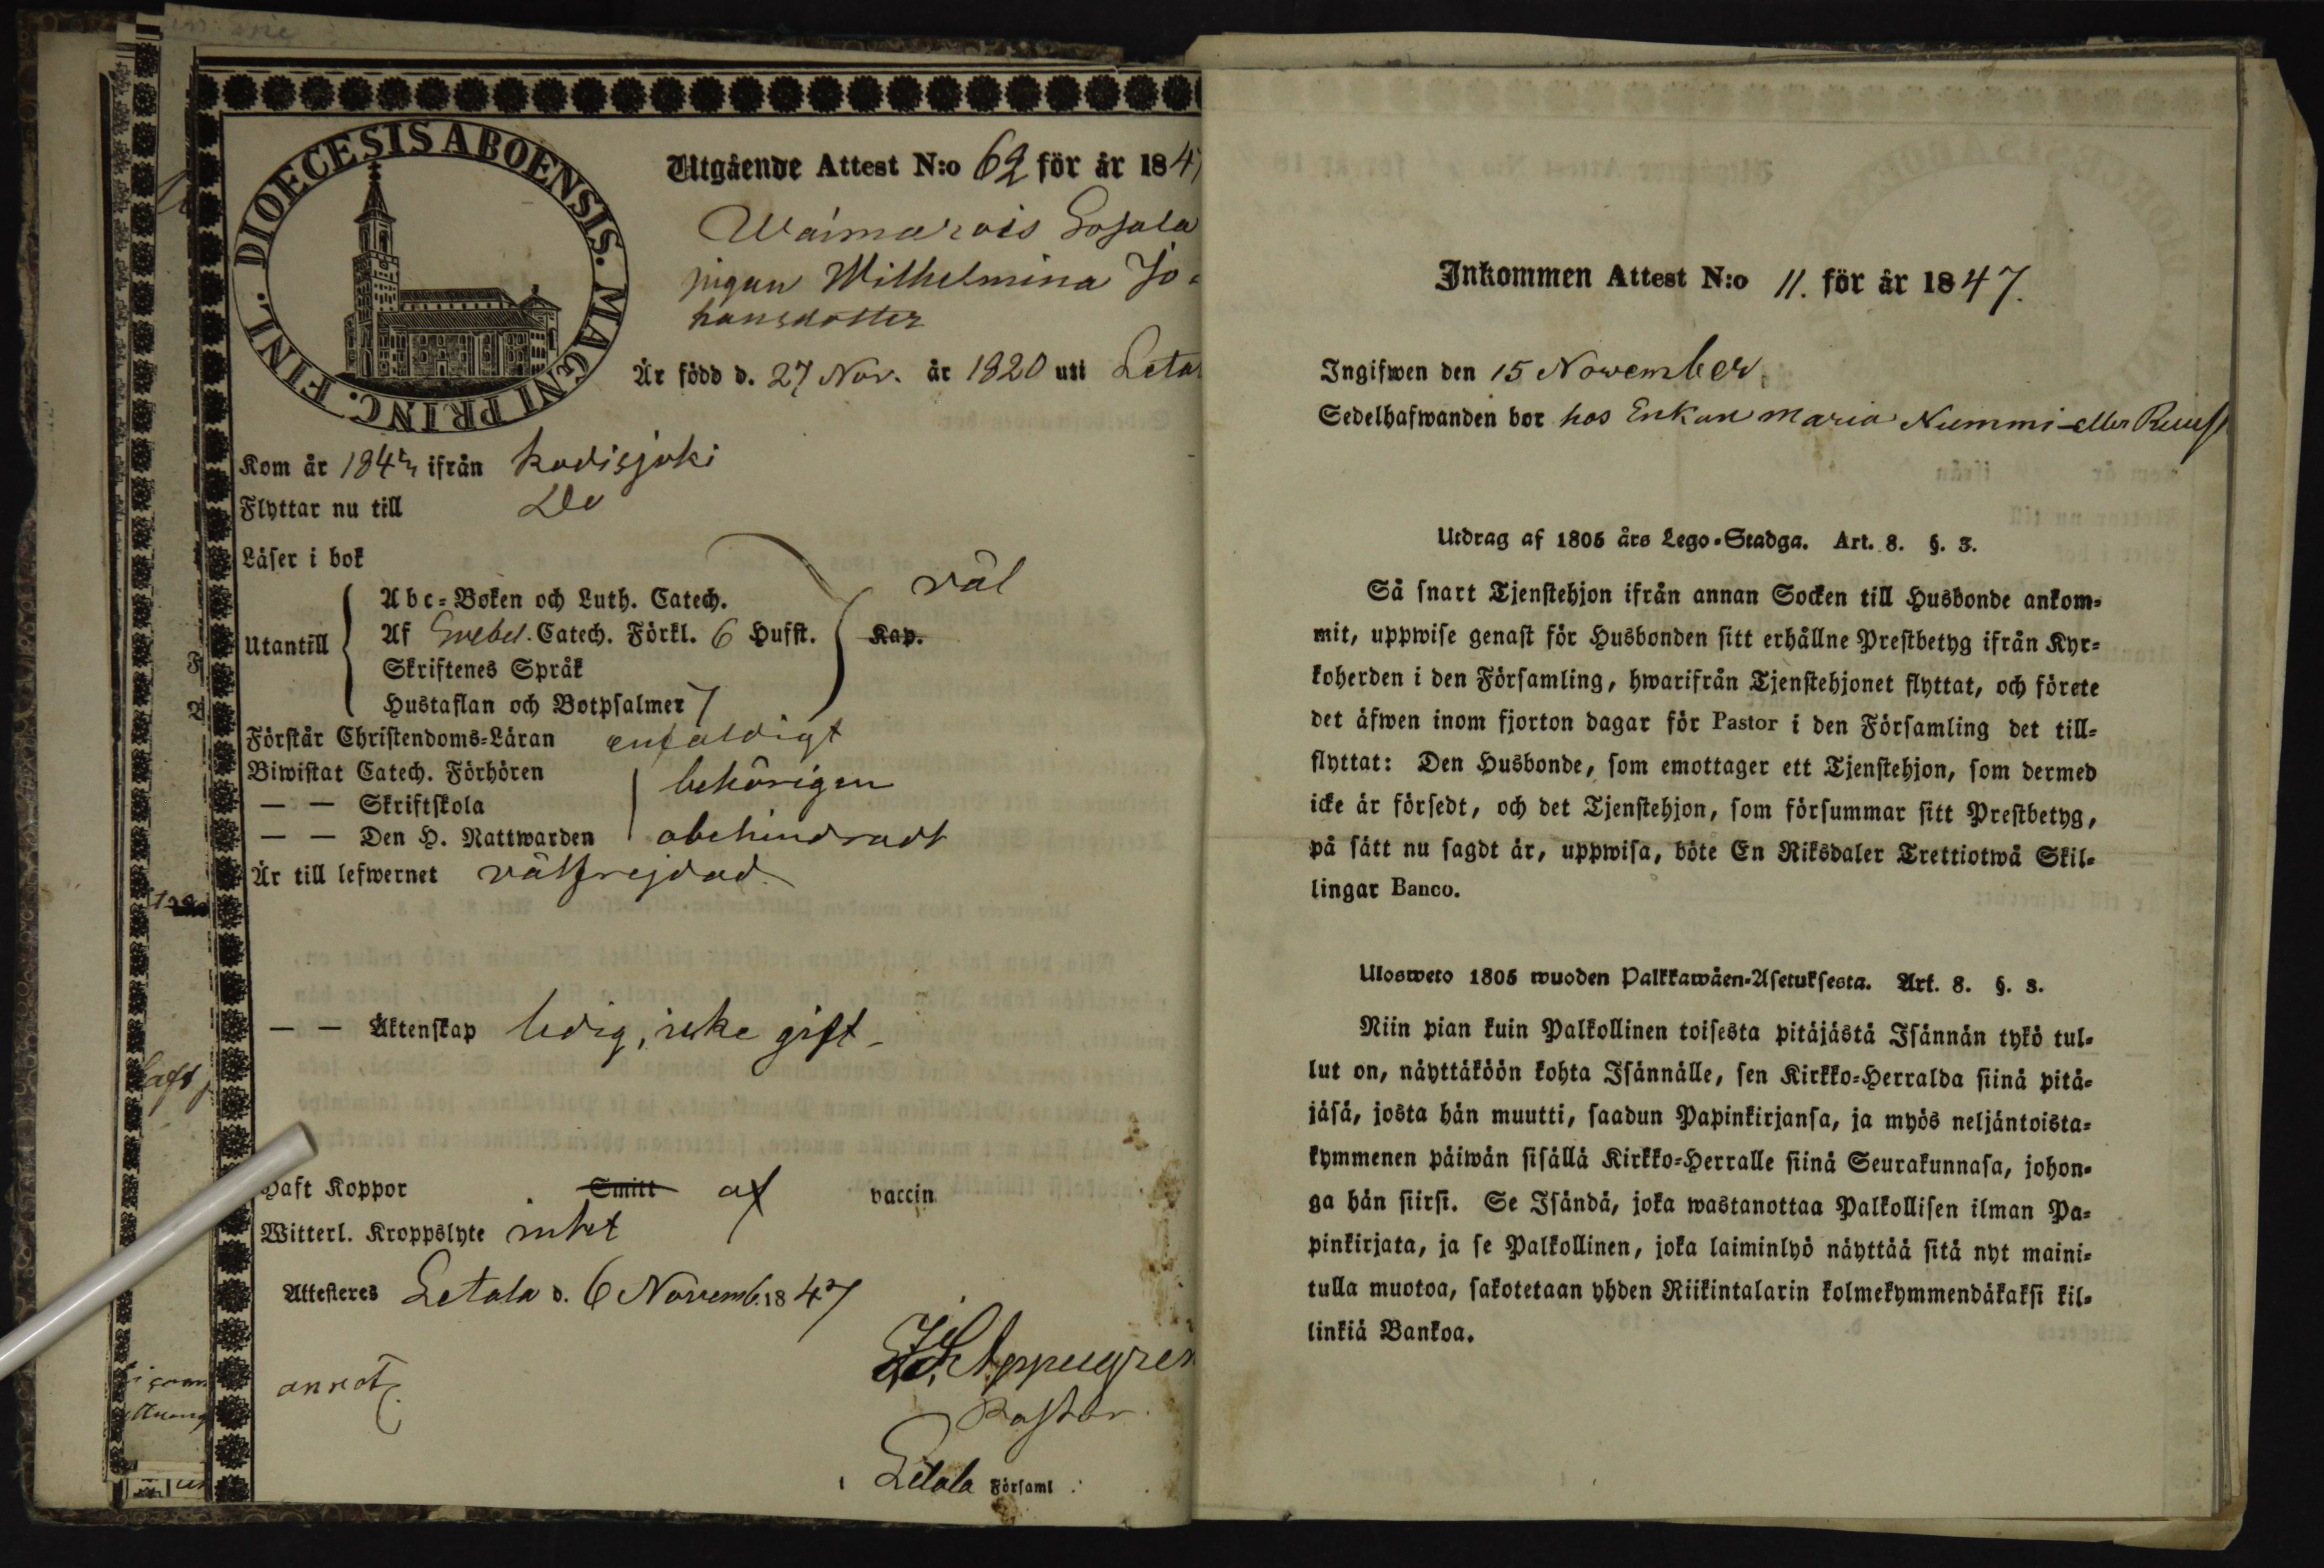 DIOECESIS ABOENSIS. MAGNI PRINC. FINL.
Utgående Attest N:o 62 för år 184
Waimarois Gosala
pigan Wilhelmina Jo-
hansdotter
Är född d. 27 Nov. år 1820 uti Leta
Kom år 184 ifrån Kodisjoki
Flyttar nu till Do
Läser i bok
Utantill
Abc-Boken och Luth. Catech.
Af Catech. Förkl. 6 Hufst. Kap. väl
Skriftenes Språk
Hustaflan och Botpsalmer 7
Förstår Christendoms-Läran enfaldigt
Biwistat Catech. Förhören behörigen
— — Skriftskola
— — Den H. Nattwarden obehindradt
Är till lefwernet välfrejdad
— — Äktenskap ledig, icke gift
Haft Koppor Smitt af vaccin
Witterl. Kroppslyte intet
Attesteres Letala d. 6 Novemb. 1847
annot.
Pastor
Letala Församl.
Inkommen Attest N:o 11. för år 1847.
Ingifwen den 15 November
Sedelhafwanden bor hos Enkan Maria Nummi eller
Utdrag af 1805 års Lego-Stadga. Art. 8. §. 3.
Så snart Tjenstehjon ifrån annan Socken till Husbonde ankom-
mit, uppwise genast för Husbonden sitt erhållne Prestbetyg ifrån Kyr-
koherden i den Församling, hwarifrån Tjenstehjonet flyttat, och förete
det äfwen inom fjorton dagar för Pastor i den Församling det till-
flyttat: Den Husbonde, som emottager ett Tjenstehjon, som dermed
icke är försedt, och det Tjenstehjon, som försummar sitt Prestbetyg,
på sätt nu sagdt är, uppwisa, böte En Riksdaler Trettiotwå Skil-
lingar Banco.
Ulosweto 1805 wuoden Palkkawäen-Asetuksesta. Art. 8. §. 3.
Niin pian kuin Palkollinen toisesta pitäjästä Isännän tykö tul-
lut on, näyttäköön kohta Isännälle, sen Kirkko-Herralda siinä pitä-
jäsä, josta hän muutti, saadun Papinkirjansa, ja myös neljäntoista-
kymmenen päiwän sisällä Kirkko-Herralle siinä Seurakunnasa, johon-
ga hän siirsi. Se Isändä, joka wastanottaa Palkollisen ilman Pa-
pinkirjata, ja se Palkollinen, joka laiminlyö näyttää sitä nyt maini-
tulla muotoa, sakotetaan yhden Riikintalarin kolmekymmendäkaksi kil-
linkiä Bankoa.